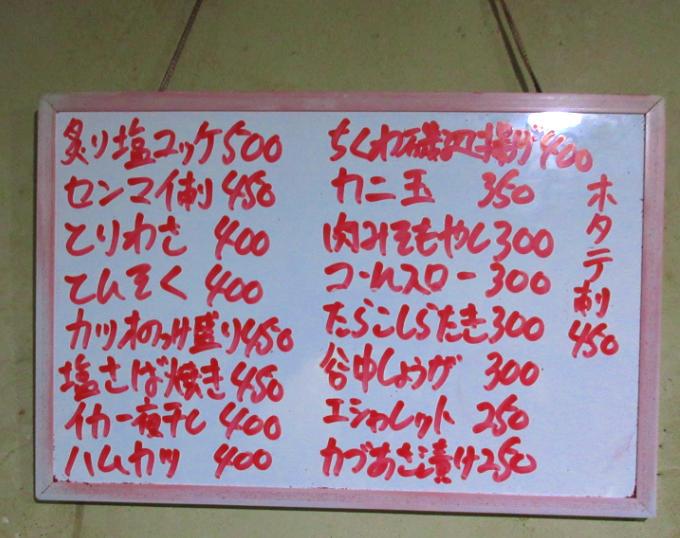 炙り塩ユッケ 500
センマイ刺 450
とりわさ 400
とんそく 400
カツオのっけ盛り 450
塩さば焼き 450
イカ一夜干し 400
ハムカツ 400
ちくわ磯辺揚げ 400
カニ玉 350
肉みそもやし 300
コールスロー 300
たらこしらたき 300
谷中しょうが 300
エシャレット 250
カブあさ漬け 250
ホタテ刺 450